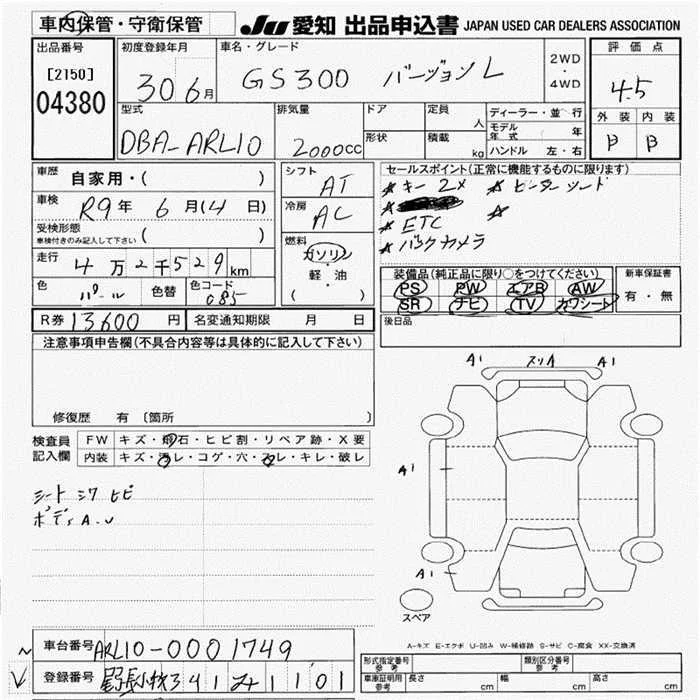 車内保管・守衛保管
JU 愛知 出品申込書 JAPAN USED CAR DEALERS ASSOCIATION
出品番号
[2150]
04380
初度登録年月
30 6月
車名・グレード
GS300 バージョンL
2WD
・
4WD
評価点
4.5
外装 内装
B B
型式
DBA-ARL10
排気量
2000cc
ドア
形状
定員 人
積載 kg
ディーラー・並行
モデル年式 年
ハンドル 左・右
車歴
自家用・( )
車検
R9年 6月14日)
受検形態
車検付きのみ記入して下さい ( )
走行
4万2千529km
色
パール
色替
色コード
085
シフト
AT
冷房
AC
燃料
ガソリン
・
軽・油
( )
セールスポイント(正常に機能するものに限ります)
キー2× ヒーターシート
ETC
バックカメラ
装備品(純正品に限り○をつけてください)
PS PW エアB AW
SR ナビ TV カワシート
新車保証書
有・無
後日品
R券 13600円
名変通知期限 月 日
注意事項申告欄(不具合内容等は具体的に記入して下さい)
修復歴 有〔箇所
検査員
記入欄
FW キズ・飛石・ヒビ割・リペア跡・X要
内装 キズ・汚レ・コゲ・穴・スレ・キレ・破レ
シート シワ ヒビ
ボディ A.U
A1 スリA A1
A1
A1
スペア
A-キズ E-エクボ U-凹み W-補修跡 S-サビ C-腐食 XX-交換済
車台番号 ARL10-0001749
登録番号
形式指定番号
参考
類別区分番号
参考
車庫証明用
参考
長さ cm 幅 cm 高さ cm